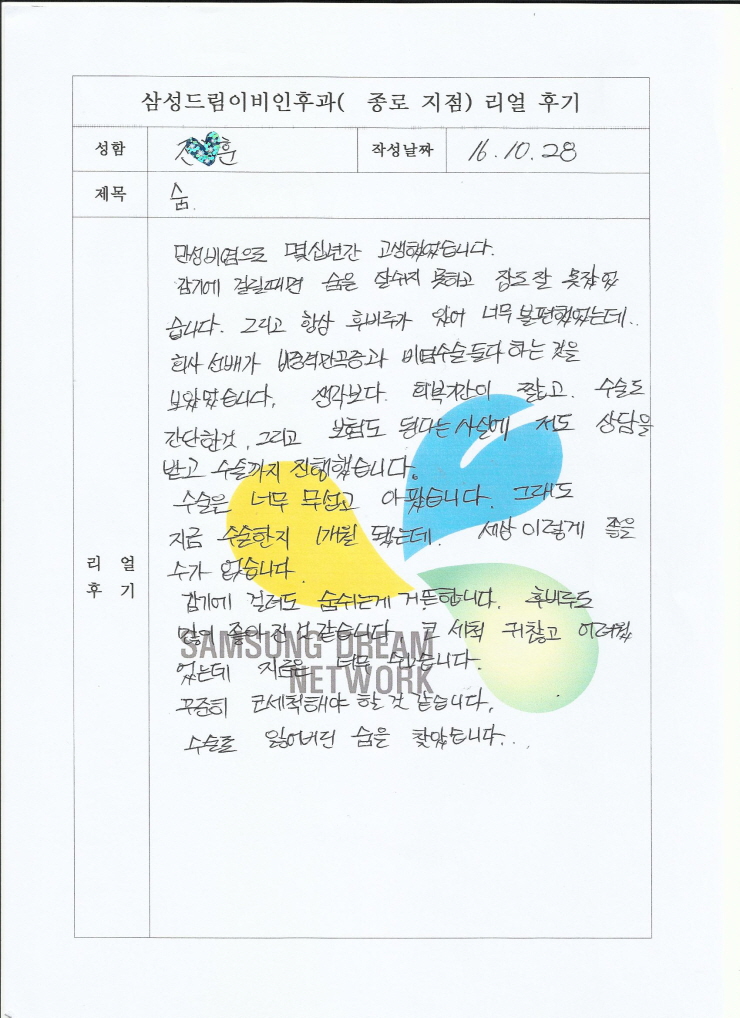 삼성드림이비인후과( 종로 지점) 리얼 후기
성함 훈 작성날짜 16.10.28
제목 숨.
리 얼
후 기
만성비염으로 몇십년간 고생했었습니다.
감기에 걸릴때면 숨을 잘쉬지 못하고 잠도 잘 못잤었
습니다. 그리고 항상 후비루가 있어 너무 불편했었는데..
회사 선배가 비중격만곡증과 비염수술 둘다 하는 것을
보았었습니다. 생각보다. 회복기간이 짧고. 수술도
간단한것, 그리고 보험도 된다는 사실에 저도 상담을
받고 수술까지 진행했습니다.
수술은 너무 무섭고 아팠습니다. 그래도
지금 수술한지 1개월 됐는데. 세상 이렇게 좋을
수가 없습니다.
감기에 걸려도 숨쉬는게 거뜬합니다. 후비루도
많이 좋아진 것 같습니다. 코 세척 귀찮고 어려웠
었는데 지금은 너무 쉽습니다.
꾸준히 코세척해야 할 것 같습니다.
수술로 잃어버린 숨을 찾았습니다...
SAMSUNG DREAM
NETWORK